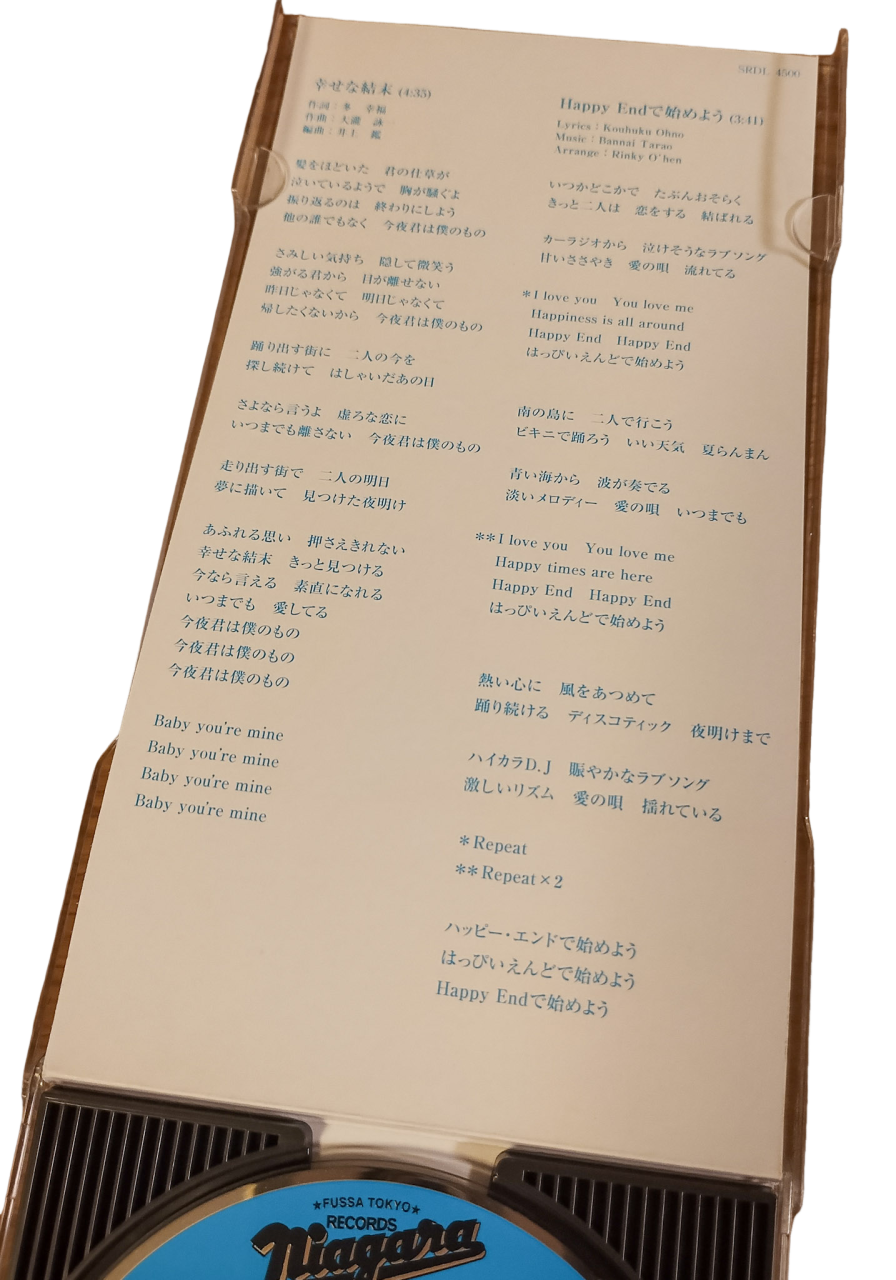 SRDL 4500
幸せな結末 (4:35)
作詞:多 幸福
作曲:大瀧 詠一
編曲:井上 鑑
髪をほどいた 君の仕草が
泣いているようで 胸が騒ぐよ
振り返るのは 終わりにしよう
他の誰でもなく 今夜君は僕のもの
さみしい気持ち 隠して微笑う
強がる君から 目が離せない
昨日じゃなくて 明日じゃなくて
帰したくないから 今夜君は僕のもの
踊り出す街に 二人の今を
探し続けて はしゃいだあの日
さよなら言うよ 虚ろな恋に
いつまでも離さない 今夜君は僕のもの
走り出す街で 二人の明日
夢に描いて 見つけた夜明け
あふれる思い 押さえきれない
幸せな結末 きっと見つける
今なら言える 素直になれる
いつまでも 愛してる
今夜君は僕のもの
今夜君は僕のもの
今夜君は僕のもの
Baby you're mine
Baby you're mine
Baby you're mine
Baby you're mine
Happy Endで始めよう (3:41)
Lyrics : Kouhuku Ohno
Music : Bannai Tarao
Arrange : Rinky O'hen
いつかどこかで たぶんおそらく
きっと二人は 恋をする 結ばれる
カーラジオから 泣けそうなラブソング
甘いささやき 愛の唄 流れてる
*I love you You love me
Happiness is all around
Happy End Happy End
はっぴいえんどで始めよう
南の島に 二人で行こう
ビキニで踊ろう いい天気 夏らんまん
青い海から 波が奏でる
淡いメロディー 愛の唄 いつまでも
**I love you You love me
Happy times are here
Happy End Happy End
はっぴいえんどで始めよう
熱い心に 風をあつめて
踊り続ける ディスコティック 夜明けまで
ハイカラD.J 賑やかなラブソング
激しいリズム 愛の唄 揺れている
*Repeat
**Repeat×2
ハッピー・エンドで始めよう
はっぴいえんどで始めよう
Happy Endで始めよう
★FUSSA TOKYO★
RECORDS
Niagara